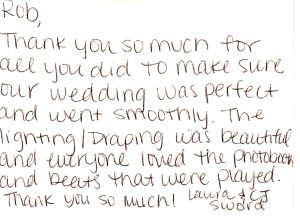 Rob,
Thank you so much for
all you did to make sure
our wedding was perfect
and went smoothly. The
lighting/Draping was beautiful
and everyone loved the photobooth
and beats that were played.
Thank you so much! Laura & CJ
Sword